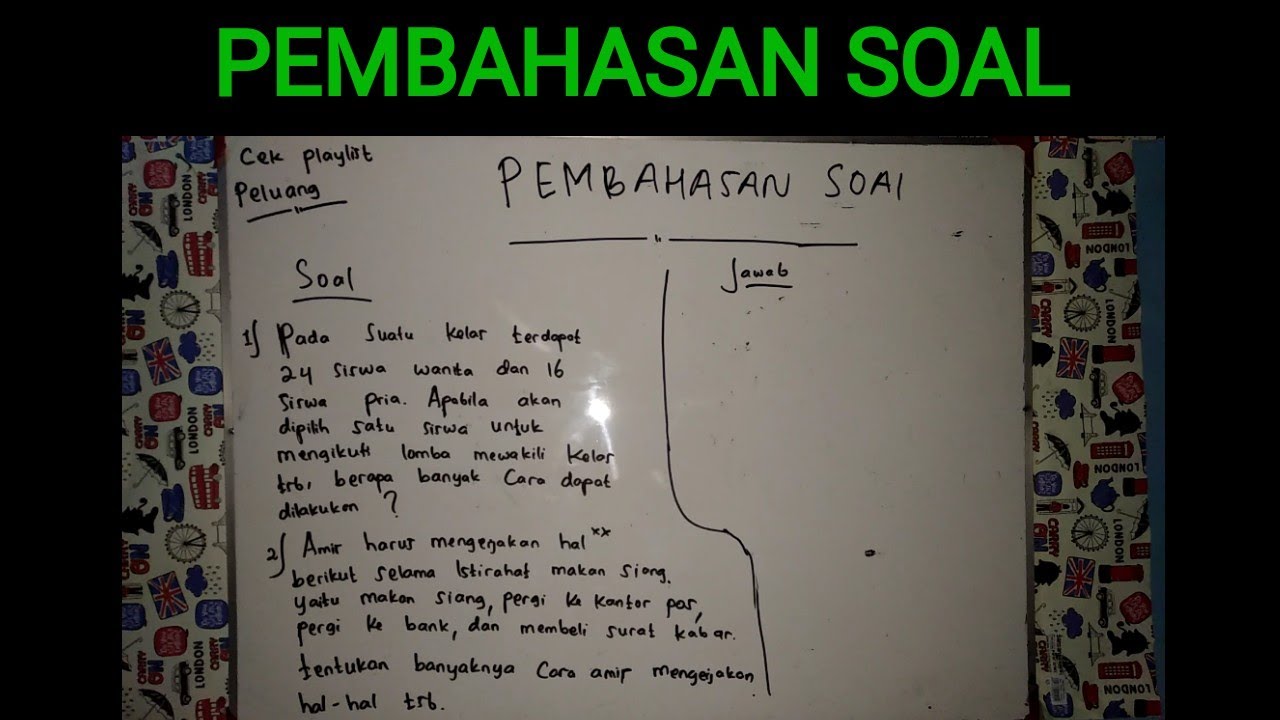 PEMBAHASAN SOAL
Cek playlist
Peluang
PEMBAHASAN SOAl
Soal
Jawab
1) Pada suatu kelas terdapat
24 siswa wanita dan 16
siswa pria. Apabila akan
dipilih satu siswa untuk
mengikuti lomba mewakili kelas
trb, berapa banyak cara dapat
dilakukan ?
2) Amir harus mengerjakan hal**
berikut selama istirahat makan siang.
yaitu makan siang, pergi ke kantor pos,
pergi ke bank, dan membeli surat kabar.
tentukan banyaknya cara amir mengerjakan
hal-hal trb.
LONDON
LONDON
LONDON
LONDON
LONDON
LONDON
LONDON
LONDON